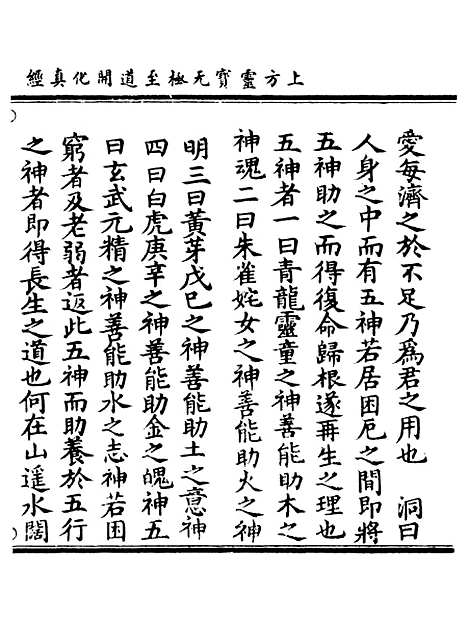 上方靈寳无極至道開化真經
愛每濟之於不足乃爲君之用也　洞曰
人身之中而有五神若居困厄之間即將
五神助之而得復命歸根遂再生之理也
五神者一曰青龍靈童之神善能助木之
神魂二曰朱雀姹女之神善能助火之神
明三曰黃芽戊巳之神善能助土之意神
四曰白虎庚辛之神善能助金之魄神五
曰玄武元精之神善能助水之志神若困
窮者及老弱者返此五神而助養於五行
之神者即得長生之道也何在山遥水闊